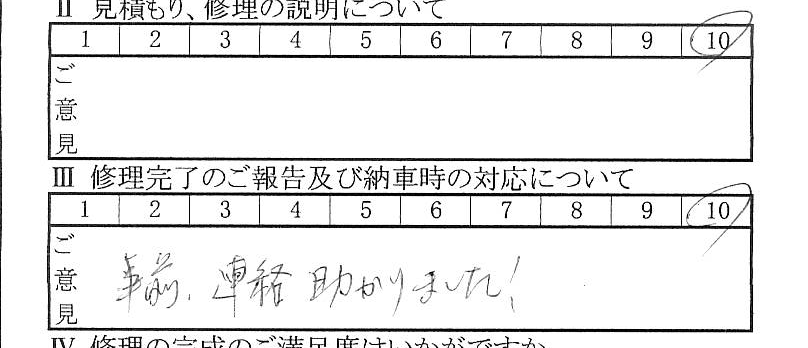 Ⅱ 見積もり、修理の説明について
1 2 3 4 5 6 7 8 9 10
ご
意
見
Ⅲ 修理完了のご報告及び納車時の対応について
1 2 3 4 5 6 7 8 9 10
ご
意 事前、連絡助かりました!
見
Ⅳ 修理の完成のご満足度はいかがですか